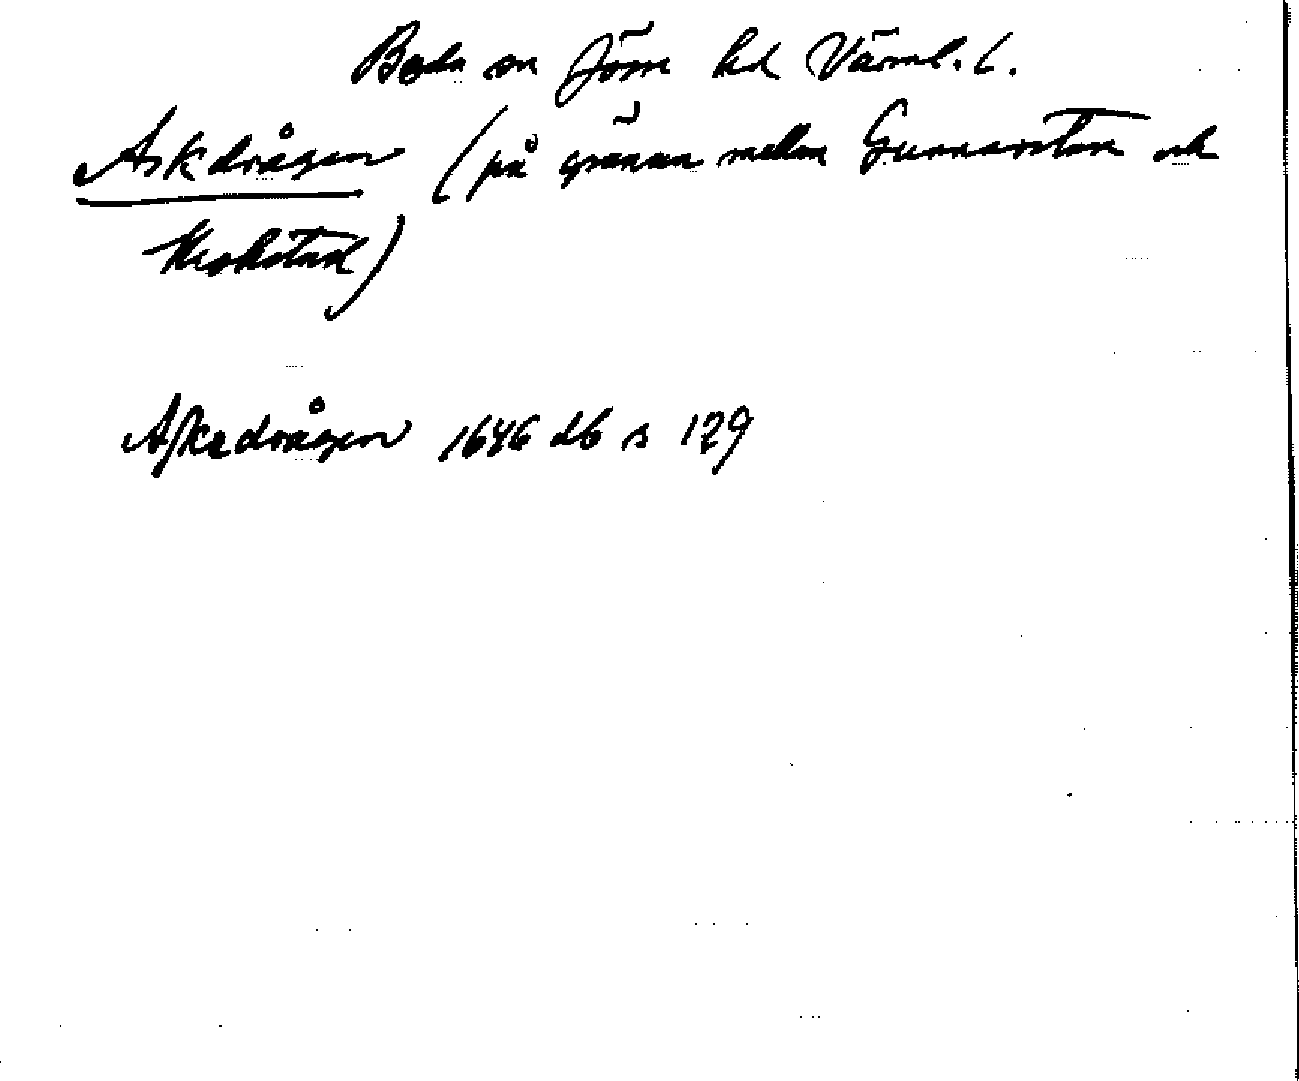 Boda sn Jösse hd Värml. l.
Askdrågen (på gränsen mellan Gunnarstan och
Krokstad)
Askedrågen 1646 db s 129